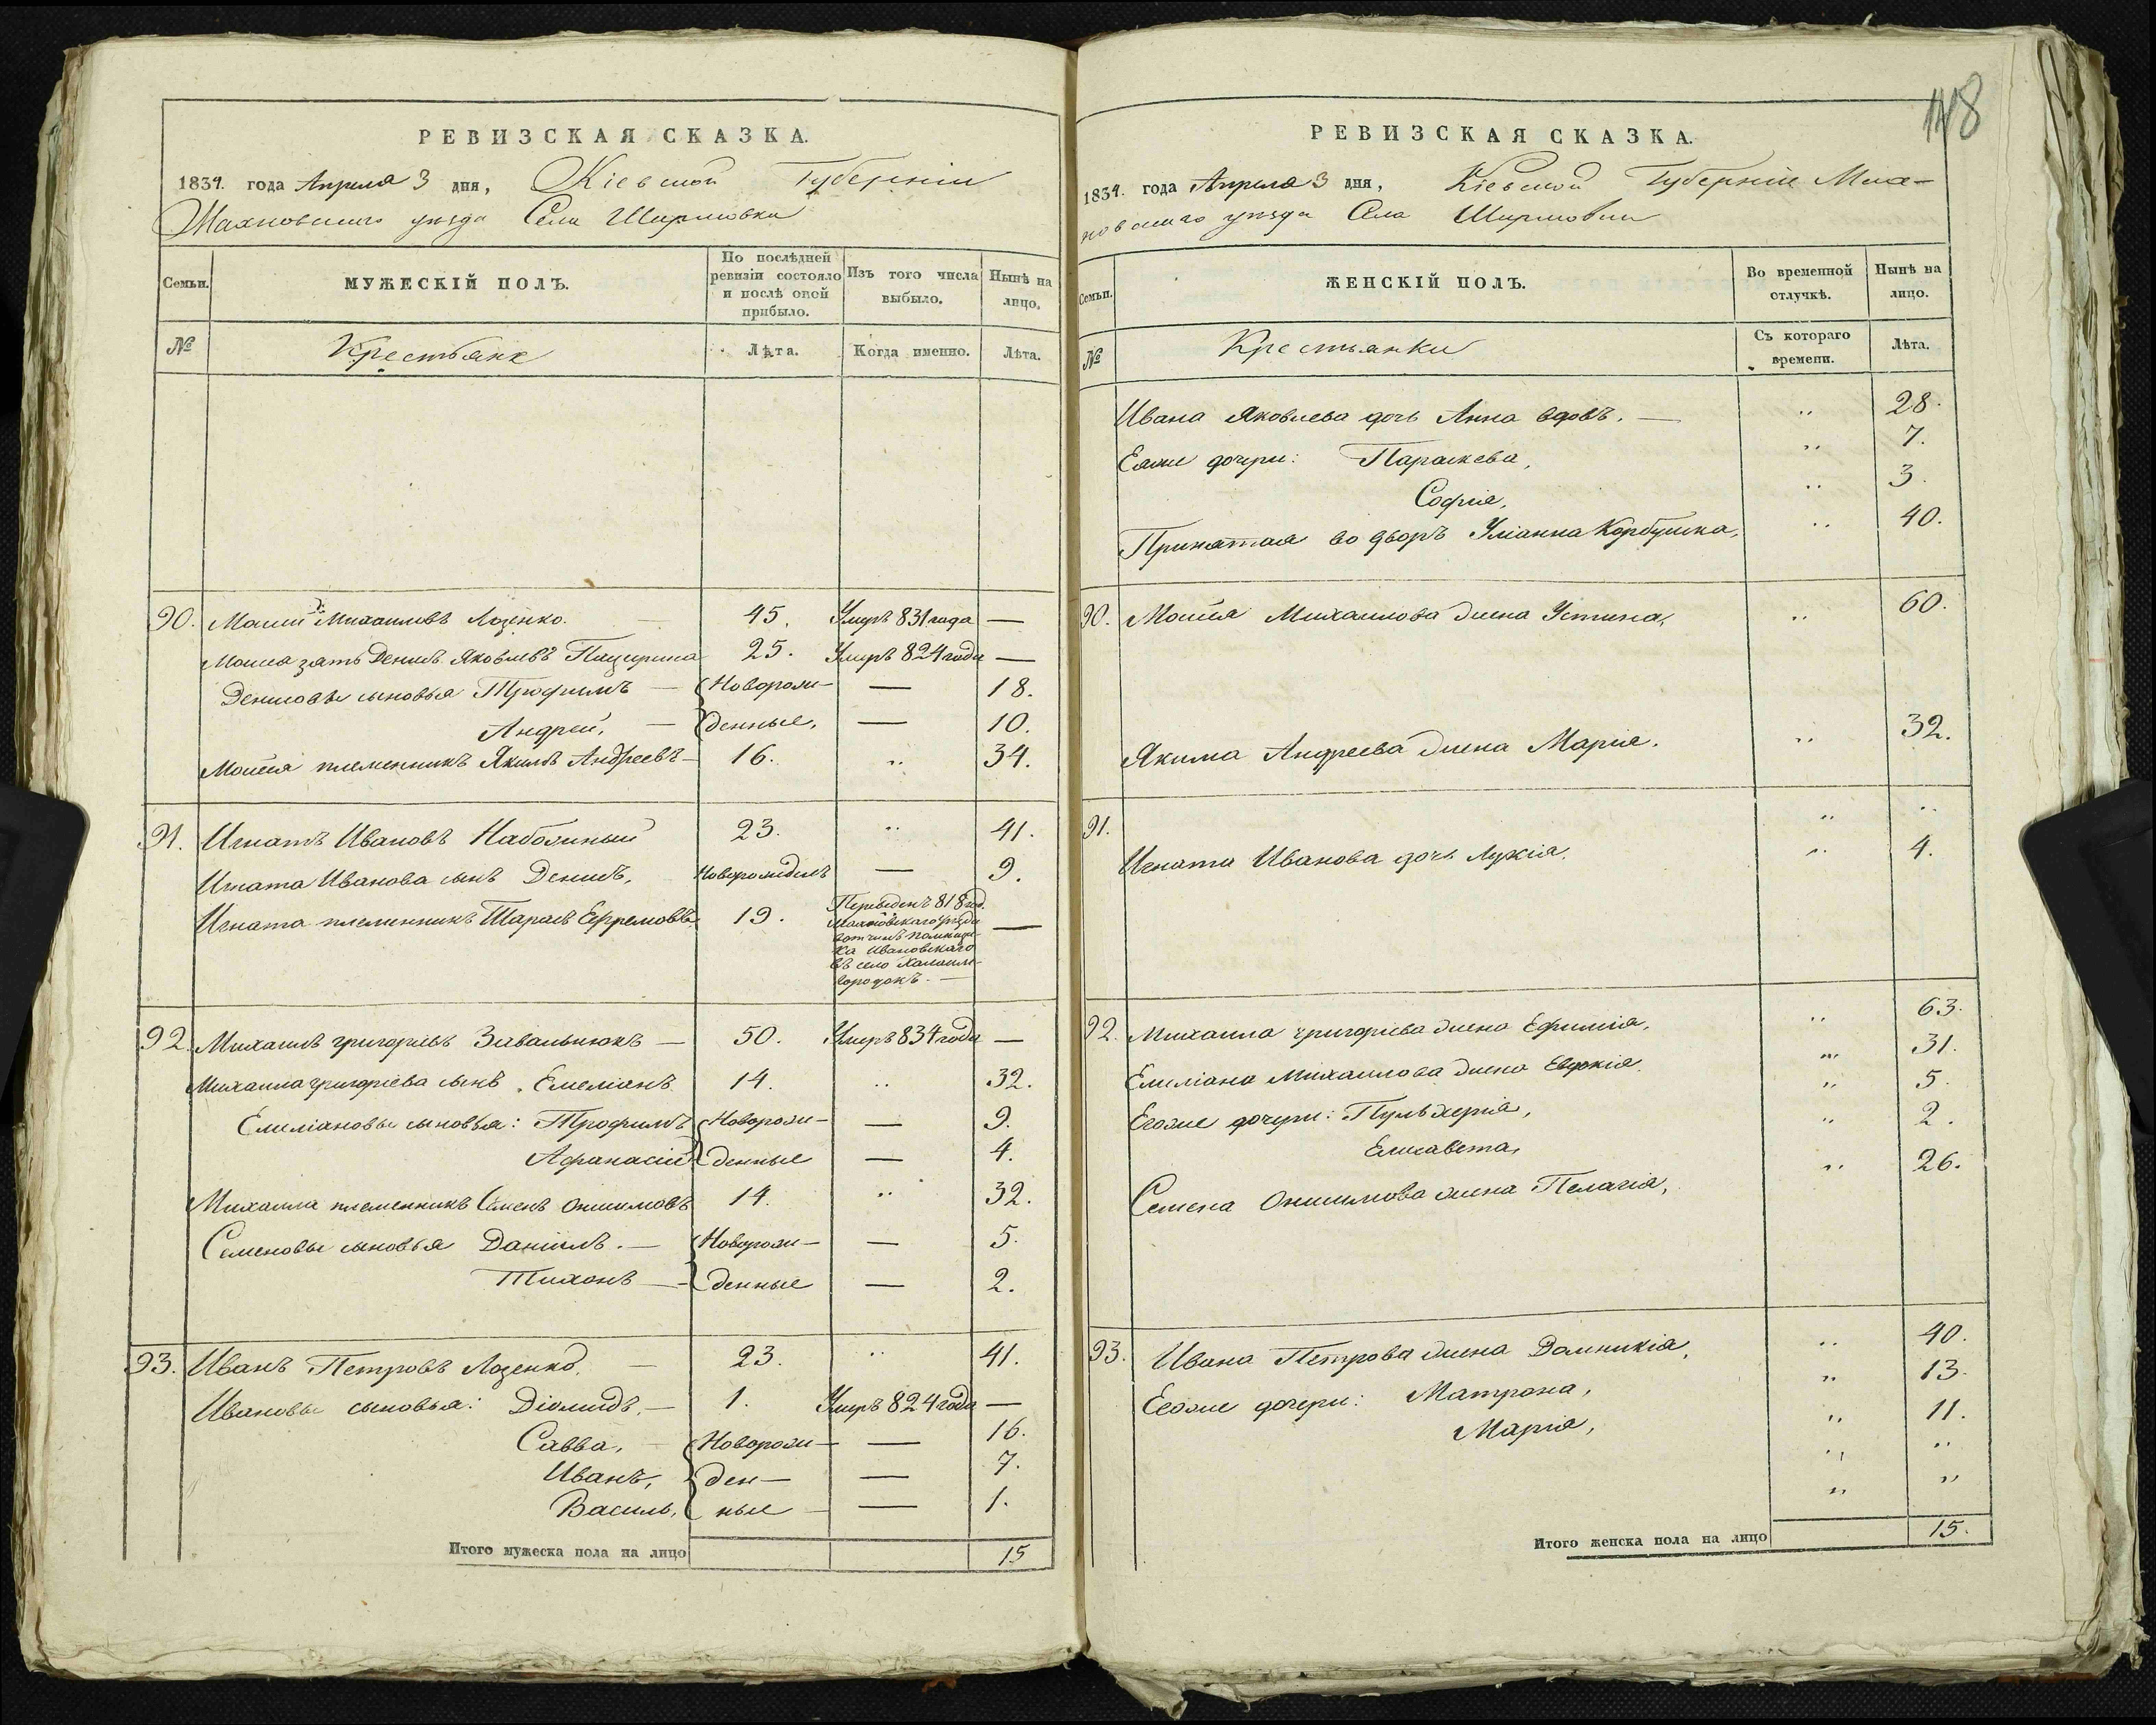 РЕВИЗСКАЯ СКАЗКА.
1834. года Апреля 3 дня, Кіевской Губерніи
Махновскаго уезда Села Ширмовки
Семьи.
МУЖЕСКІЙ ПОЛЪ.
По послѣдней ревизіи состояло и послѣ оной прибыло.
Изъ того числа выбыло.
Нынѣ на лицо.
№
Крестьяне
Лѣта.
Когда именно.
Лѣта.
90. Мойсей Михаиловъ Лозенко. 45. Умеръ 831 года —
Мойсея зять Денисъ Яковлевъ 25. Умеръ 824 года —
Денисовы сыновья Трофимъ — Новорож- — 18.
Андрей, — денные, — 10.
Мойсея племенникъ Якимъ Андреевъ — 16. „ 34.
91. Игнатъ Ивановъ Набожный 23. „ 41.
Игната Иванова сынъ Денисъ, Новорожденъ — 9.
Игната племенникъ Тарасъ Ефремовъ 19. Переведенъ 818 год.
Махновскаго уезда —
вотчины помещи-
ка Ивановскаго
въ село
городокъ. —
92. Михаилъ Григорьевъ Завальнюкъ — 50. Умеръ 834 года —
Михаила Григоріева сынъ Емеліанъ 14. „ 32.
Емеліановы сыновья: Трофимъ Новорож- — 9.
Афанасій денные — 4.
Михаила племенникъ Семенъ Онисимовъ 14. „ 32.
Семеновы сыновья Даніилъ. — Новорож- — 5.
Тихонъ — денные — 2.
93. Иванъ Петровъ Лозенко, 23. „ 41.
Ивановы сыновья: Діомидъ, — 1. Умеръ 824 года —
Савва, — Новорож- — 16.
Иванъ, ден- — 7.
Василь, ные — — 1.
Итого мужеска пола на лицо 15
148
РЕВИЗСКАЯ СКАЗКА.
1834. года Апреля 3 дня, Кіевской Губерніи Мах-
новскаго уезда Села Ширмовки
Семьи.
ЖЕНСКІЙ ПОЛЪ.
Во временной отлучкѣ.
Нынѣ на лицо.
№
Крестьянки
Съ котораго времени.
Лѣта.
Ивана Яковлева дочь Анна вдовъ. — „ 28.
Еяже дочери: Параскева, „ 7.
Софія, „ 3.
Принятая во дворъ Уліанна Корбушка, „ 40.
90. Мойсея Михаилова жена Устина, „ 60.
Якима Андреева жена Марія. „ 32.
91. „ „
Игната Иванова дочь Лукія. „ 4.
92. Михаила Григоріева жена Ефимія, „ 63.
Емиліана Михаилова жена Евдокія. „ 31.
Егоже дочери: Пульхерія, „ 5.
Елисавета, „ 2.
Семена Онисимова жена Пелагія, „ 26.
93. Ивана Петрова жена Домникія, „ 40.
Егоже дочери: Матрона, „ 13.
Марія, „ 11.
„ „
„ „
Итого женска пола на лицо 15.